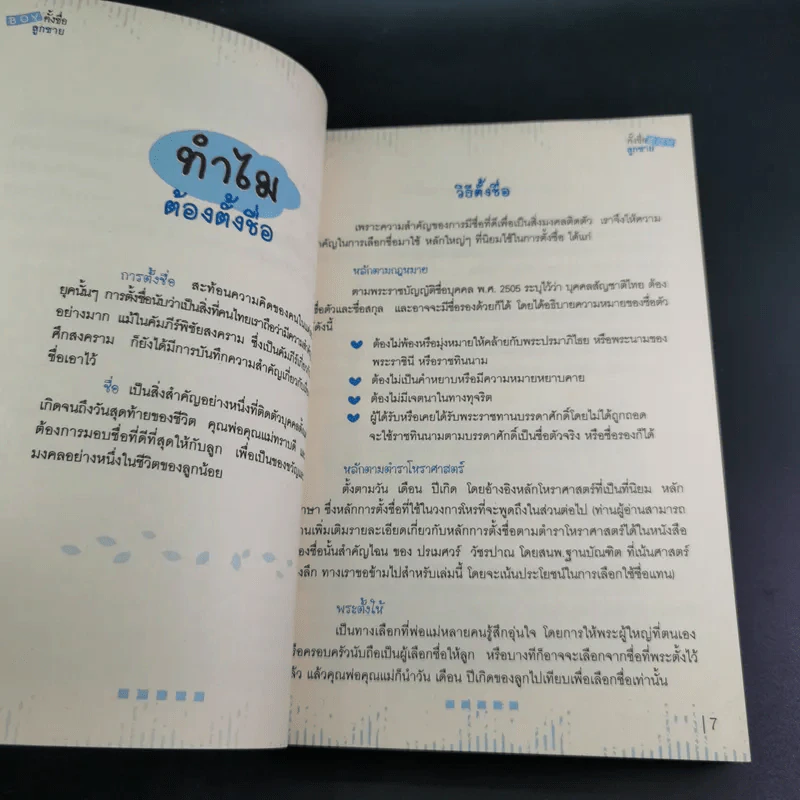 BOY ตั้งชื่อ
ลูกชาย
ทำไม
ต้องตั้งชื่อ
การตั้งชื่อ สะท้อนความคิดของคนใน
ยุคนั้นๆ การตั้งชื่อนับว่าเป็นสิ่งที่คนไทยเราถือว่ามีความ
อย่างมาก แม้ในคัมภีร์พิชัยสงคราม ซึ่งเป็นคัมภีร์
ศึกสงคราม ก็ยังได้มีการบันทึกความสำคัญเกี่ยวกับ
ชื่อเอาไว้
ชื่อ เป็นสิ่งสำคัญอย่างหนึ่งที่ติดตัวบุคคล
เกิดจนถึงวันสุดท้ายของชีวิต คุณพ่อคุณแม่ทราบดี
ต้องการมอบชื่อที่ดีที่สุดให้กับลูก เพื่อเป็นของขวัญ
มงคลอย่างหนึ่งในชีวิตของลูกน้อย
ตั้งชื่อ BOY
ลูกชาย
วิธีตั้งชื่อ
เพราะความสำคัญของการมีชื่อที่ดีเพื่อเป็นสิ่งมงคลติดตัว เราจึงให้ความ
สำคัญในการเลือกชื่อมาใช้ หลักใหญ่ๆ ที่นิยมใช้ในการตั้งชื่อ ได้แก่
หลักตามกฎหมาย
ตามพระราชบัญญัติชื่อบุคคล พ.ศ. 2505 ระบุไว้ว่า บุคคลสัญชาติไทย ต้อง
ชื่อตัวและชื่อสกุล และอาจจะมีชื่อรองด้วยก็ได้ โดยได้อธิบายความหมายของชื่อตัว
ดังนี้
ต้องไม่พ้องหรือมุ่งหมายให้คล้ายกับพระปรมาภิไธย หรือพระนามของ
พระราชินี หรือราชทินนาม
ต้องไม่เป็นคำหยาบหรือมีความหมายหยาบคาย
ต้องไม่มีเจตนาในทางทุจริต
ผู้ได้รับหรือเคยได้รับพระราชทานบรรดาศักดิ์โดยไม่ได้ถูกถอด
จะใช้ราชทินนามตามบรรดาศักดิ์เป็นชื่อตัวจริง หรือชื่อรองก็ได้
หลักตามตำราโหราศาสตร์
ตั้งตามวัน เดือน ปีเกิด โดยอ้างอิงหลักโหราศาสตร์ที่เป็นที่นิยม หลัก
ษา ซึ่งหลักการตั้งชื่อที่ใช้ในวงการโหรที่จะพูดถึงในส่วนต่อไป (ท่านผู้อ่านสามารถ
านเพิ่มเติมรายละเอียดเกี่ยวกับหลักการตั้งชื่อตามตำราโหราศาสตร์ได้ในหนังสือ
องชื่อนั้นสำคัญไฉน ของ ปรเมศวร์ วัชรปาณ โดยสนพ.ฐานบัณฑิต ที่เน้นศาสตร์
งลึก ทางเราขอข้ามไปสำหรับเล่มนี้ โดยจะเน้นประโยชน์ในการเลือกใช้ชื่อแทน)
พระตั้งให้
เป็นทางเลือกที่พ่อแม่หลายคนรู้สึกอุ่นใจ โดยการให้พระผู้ใหญ่ที่ตนเอง
รือครอบครัวนับถือเป็นผู้เลือกชื่อให้ลูก หรือบางทีก็อาจจะเลือกจากชื่อที่พระตั้งไว้
ล้ว แล้วคุณพ่อคุณแม่ก็นำวัน เดือน ปีเกิดของลูกไปเทียบเพื่อเลือกชื่อเท่านั้น
7